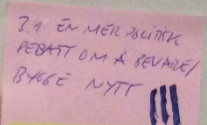 3.1 EN MER POLITISK
DEBATT OM Å BEVARE/
BYGGE NYTT